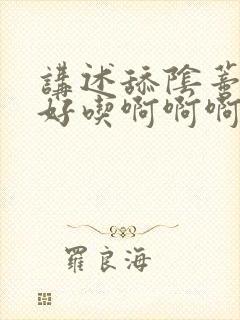 講述舔陰蒂
好喫啊啊啊
羅良海